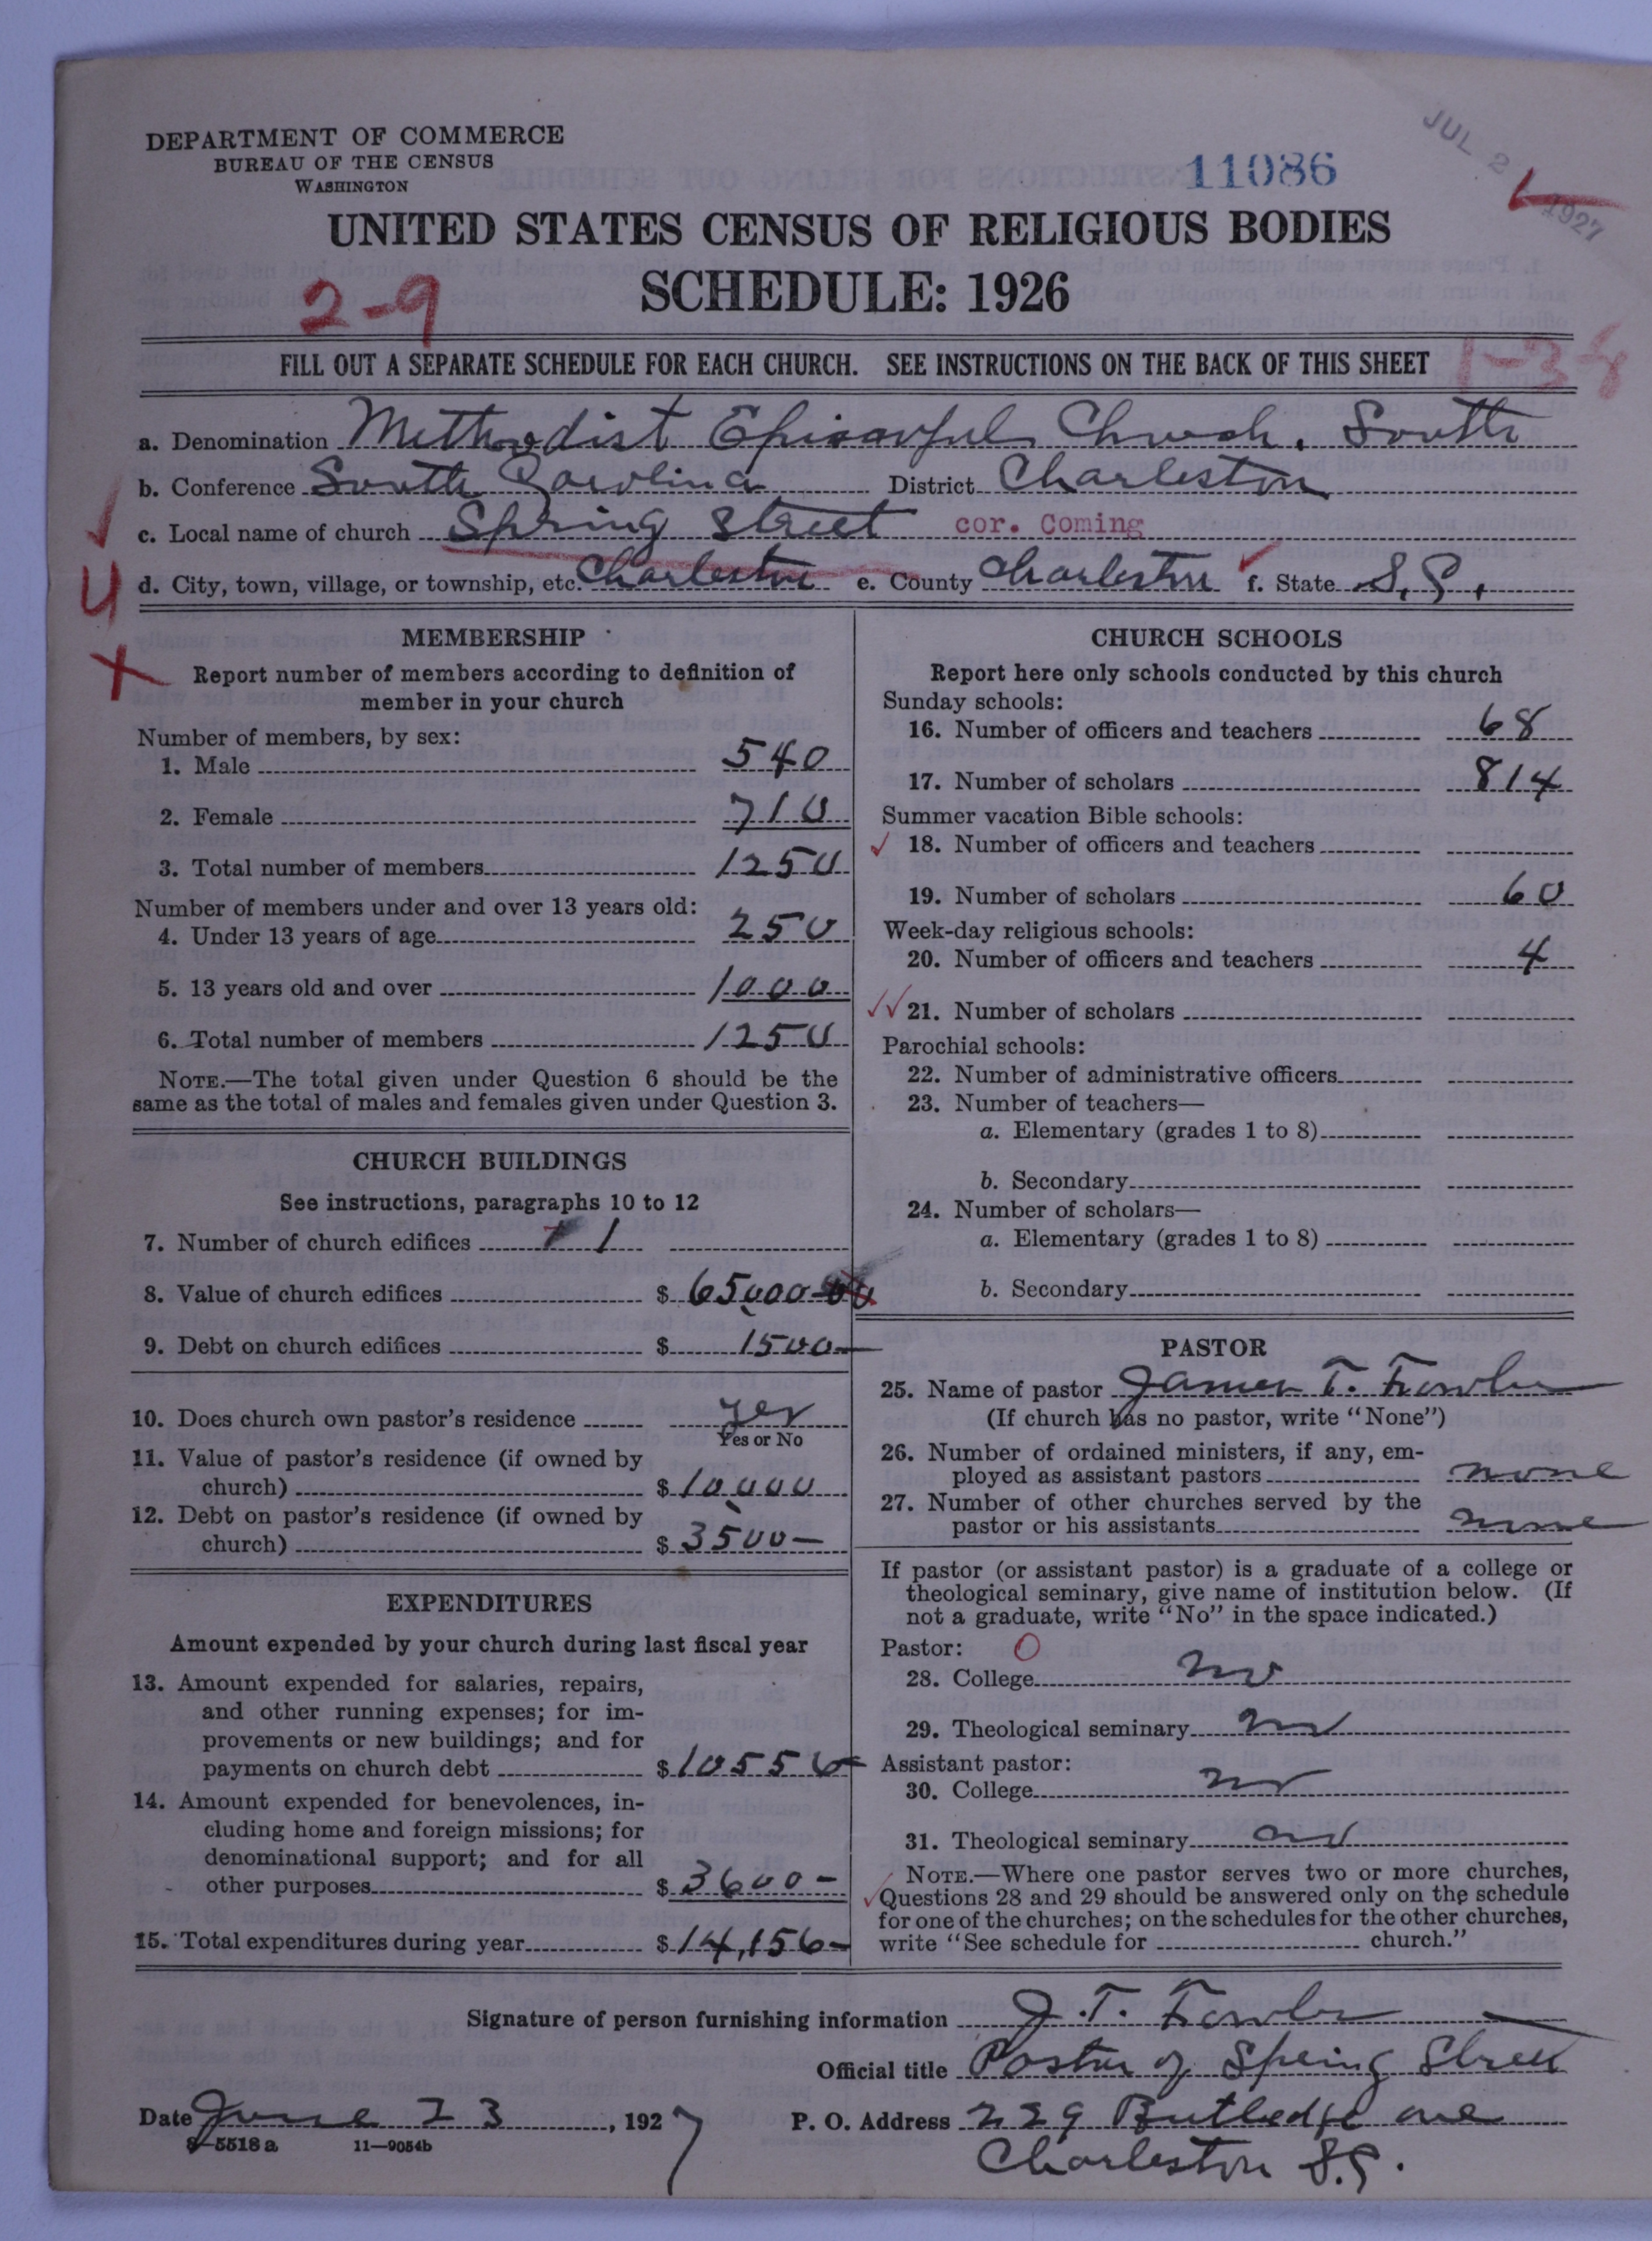 DEPARTMENT OF COMMERCE
BUREAU OF THE CENSUS
WASHINGTON
11086
JUL 2 1927
UNITED STATES CENSUS OF RELIGIOUS BODIES
SCHEDULE: 1926
2-9
FILL OUT A SEPARATE SCHEDULE FOR EACH CHURCH. SEE INSTRUCTIONS ON THE BACK OF THIS SHEET
1-38
a. Denomination Methodist Episcopal Church, South
b. Conference South Carolina District Charleston
c. Local name of church Spring Street cor. Coming
4 d. City, town, village, or township, etc. Charleston e. County Charleston f. State S.C.
MEMBERSHIP
X Report number of members according to definition of
member in your church
Number of members, by sex:
1. Male 540
2. Female 710
3. Total number of members 1250
Number of members under and over 13 years old:
4. Under 13 years of age 250
5. 13 years old and over 1000
6. Total number of members 1250
NOTE.—The total given under Question 6 should be the
same as the total of males and females given under Question 3.
CHURCH BUILDINGS
See instructions, paragraphs 10 to 12
7. Number of church edifices 1
8. Value of church edifices $ 65,000-00
9. Debt on church edifices $ 1500—
10. Does church own pastor's residence yes
Yes or No
11. Value of pastor's residence (if owned by
church) $ 10,000
12. Debt on pastor's residence (if owned by
church) $ 3500—
EXPENDITURES
Amount expended by your church during last fiscal year
13. Amount expended for salaries, repairs,
and other running expenses; for im-
provements or new buildings; and for
payments on church debt $ 10556—
14. Amount expended for benevolences, in-
cluding home and foreign missions; for
denominational support; and for all
other purposes $ 3600—
15. Total expenditures during year $ 14,156—
CHURCH SCHOOLS
Report here only schools conducted by this church
Sunday schools:
16. Number of officers and teachers 68
17. Number of scholars 814
Summer vacation Bible schools:
18. Number of officers and teachers
19. Number of scholars 60
Week-day religious schools:
20. Number of officers and teachers 4
21. Number of scholars
Parochial schools:
22. Number of administrative officers
23. Number of teachers—
a. Elementary (grades 1 to 8)
b. Secondary
24. Number of scholars—
a. Elementary (grades 1 to 8)
b. Secondary
PASTOR
25. Name of pastor James T. Fowler
(If church has no pastor, write "None")
26. Number of ordained ministers, if any, em-
ployed as assistant pastors none
27. Number of other churches served by the
pastor or his assistants none
If pastor (or assistant pastor) is a graduate of a college or
theological seminary, give name of institution below. (If
not a graduate, write "No" in the space indicated.)
Pastor: O
28. College no
29. Theological seminary no
Assistant pastor:
30. College no
31. Theological seminary no
NOTE.—Where one pastor serves two or more churches,
Questions 28 and 29 should be answered only on the schedule
for one of the churches; on the schedules for the other churches,
write "See schedule for church."
Signature of person furnishing information J. T. Fowler
Official title Pastor of Spring Street
Date June 23, 1927 P. O. Address 229 Rutledge ave
8-5518a 11—9054b
Charleston S.C.